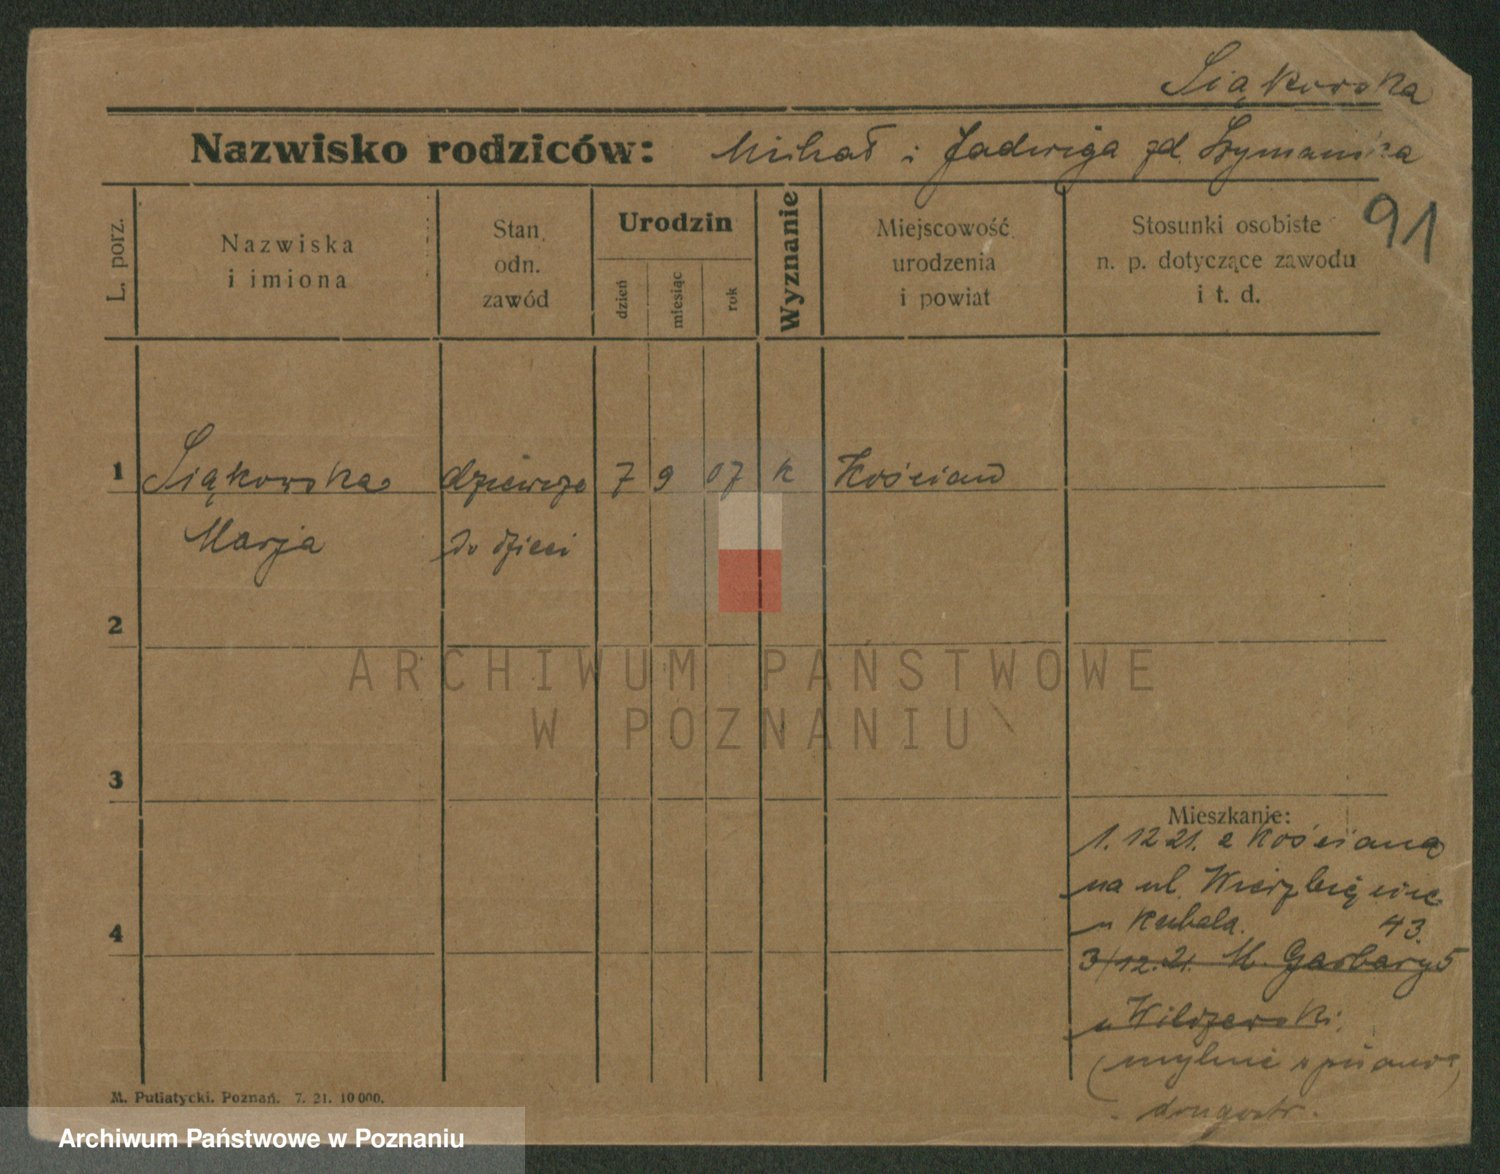 Siąkowska
Nazwisko rodziców: Michał i Jadwiga zd. Szymańska
91
L. porz.
Nazwiska
i imiona
Stan
odn.
zawód
Urodzin
dzień
miesiąc
rok
Wyznanie
Miejscowość
urodzenia
i powiat
Stosunki osobiste
n. p. dotyczące zawodu
i t. d.
1 Siąkowska dziewczę 7 9 07 k Kościan
Marja do dzieci
2
3
4
Mieszkanie:
1. 12 21. z Kościana
na ul. Wierzbięcice
u Kubala. 43.
3/12.21. M. Garbary 5
u Wilczewski.
(mylnie
drugostr.
M. Putiatycki. Poznań. 7. 21. 10 000.
ARCHIWUM PAŃSTWOWE
W POZNANIU
Archiwum Państwowe w Poznaniu